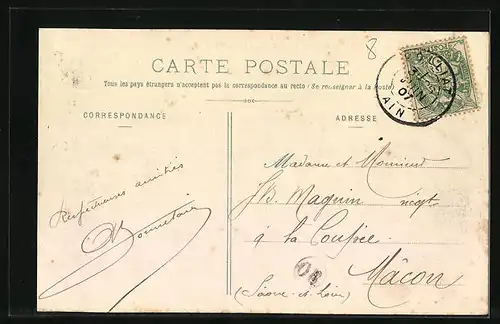 8
CARTE POSTALE
Tous les pays étrangers n'acceptent pas la correspondance au recto (Se renseigner à la Poste)
CORRESPONDANCE
ADRESSE
Respectueuses amitiés
Madame et Monsieur
JB. Maguin négt
à la Coupée
Mâcon
(Saône-et-Loire)
AIN
07